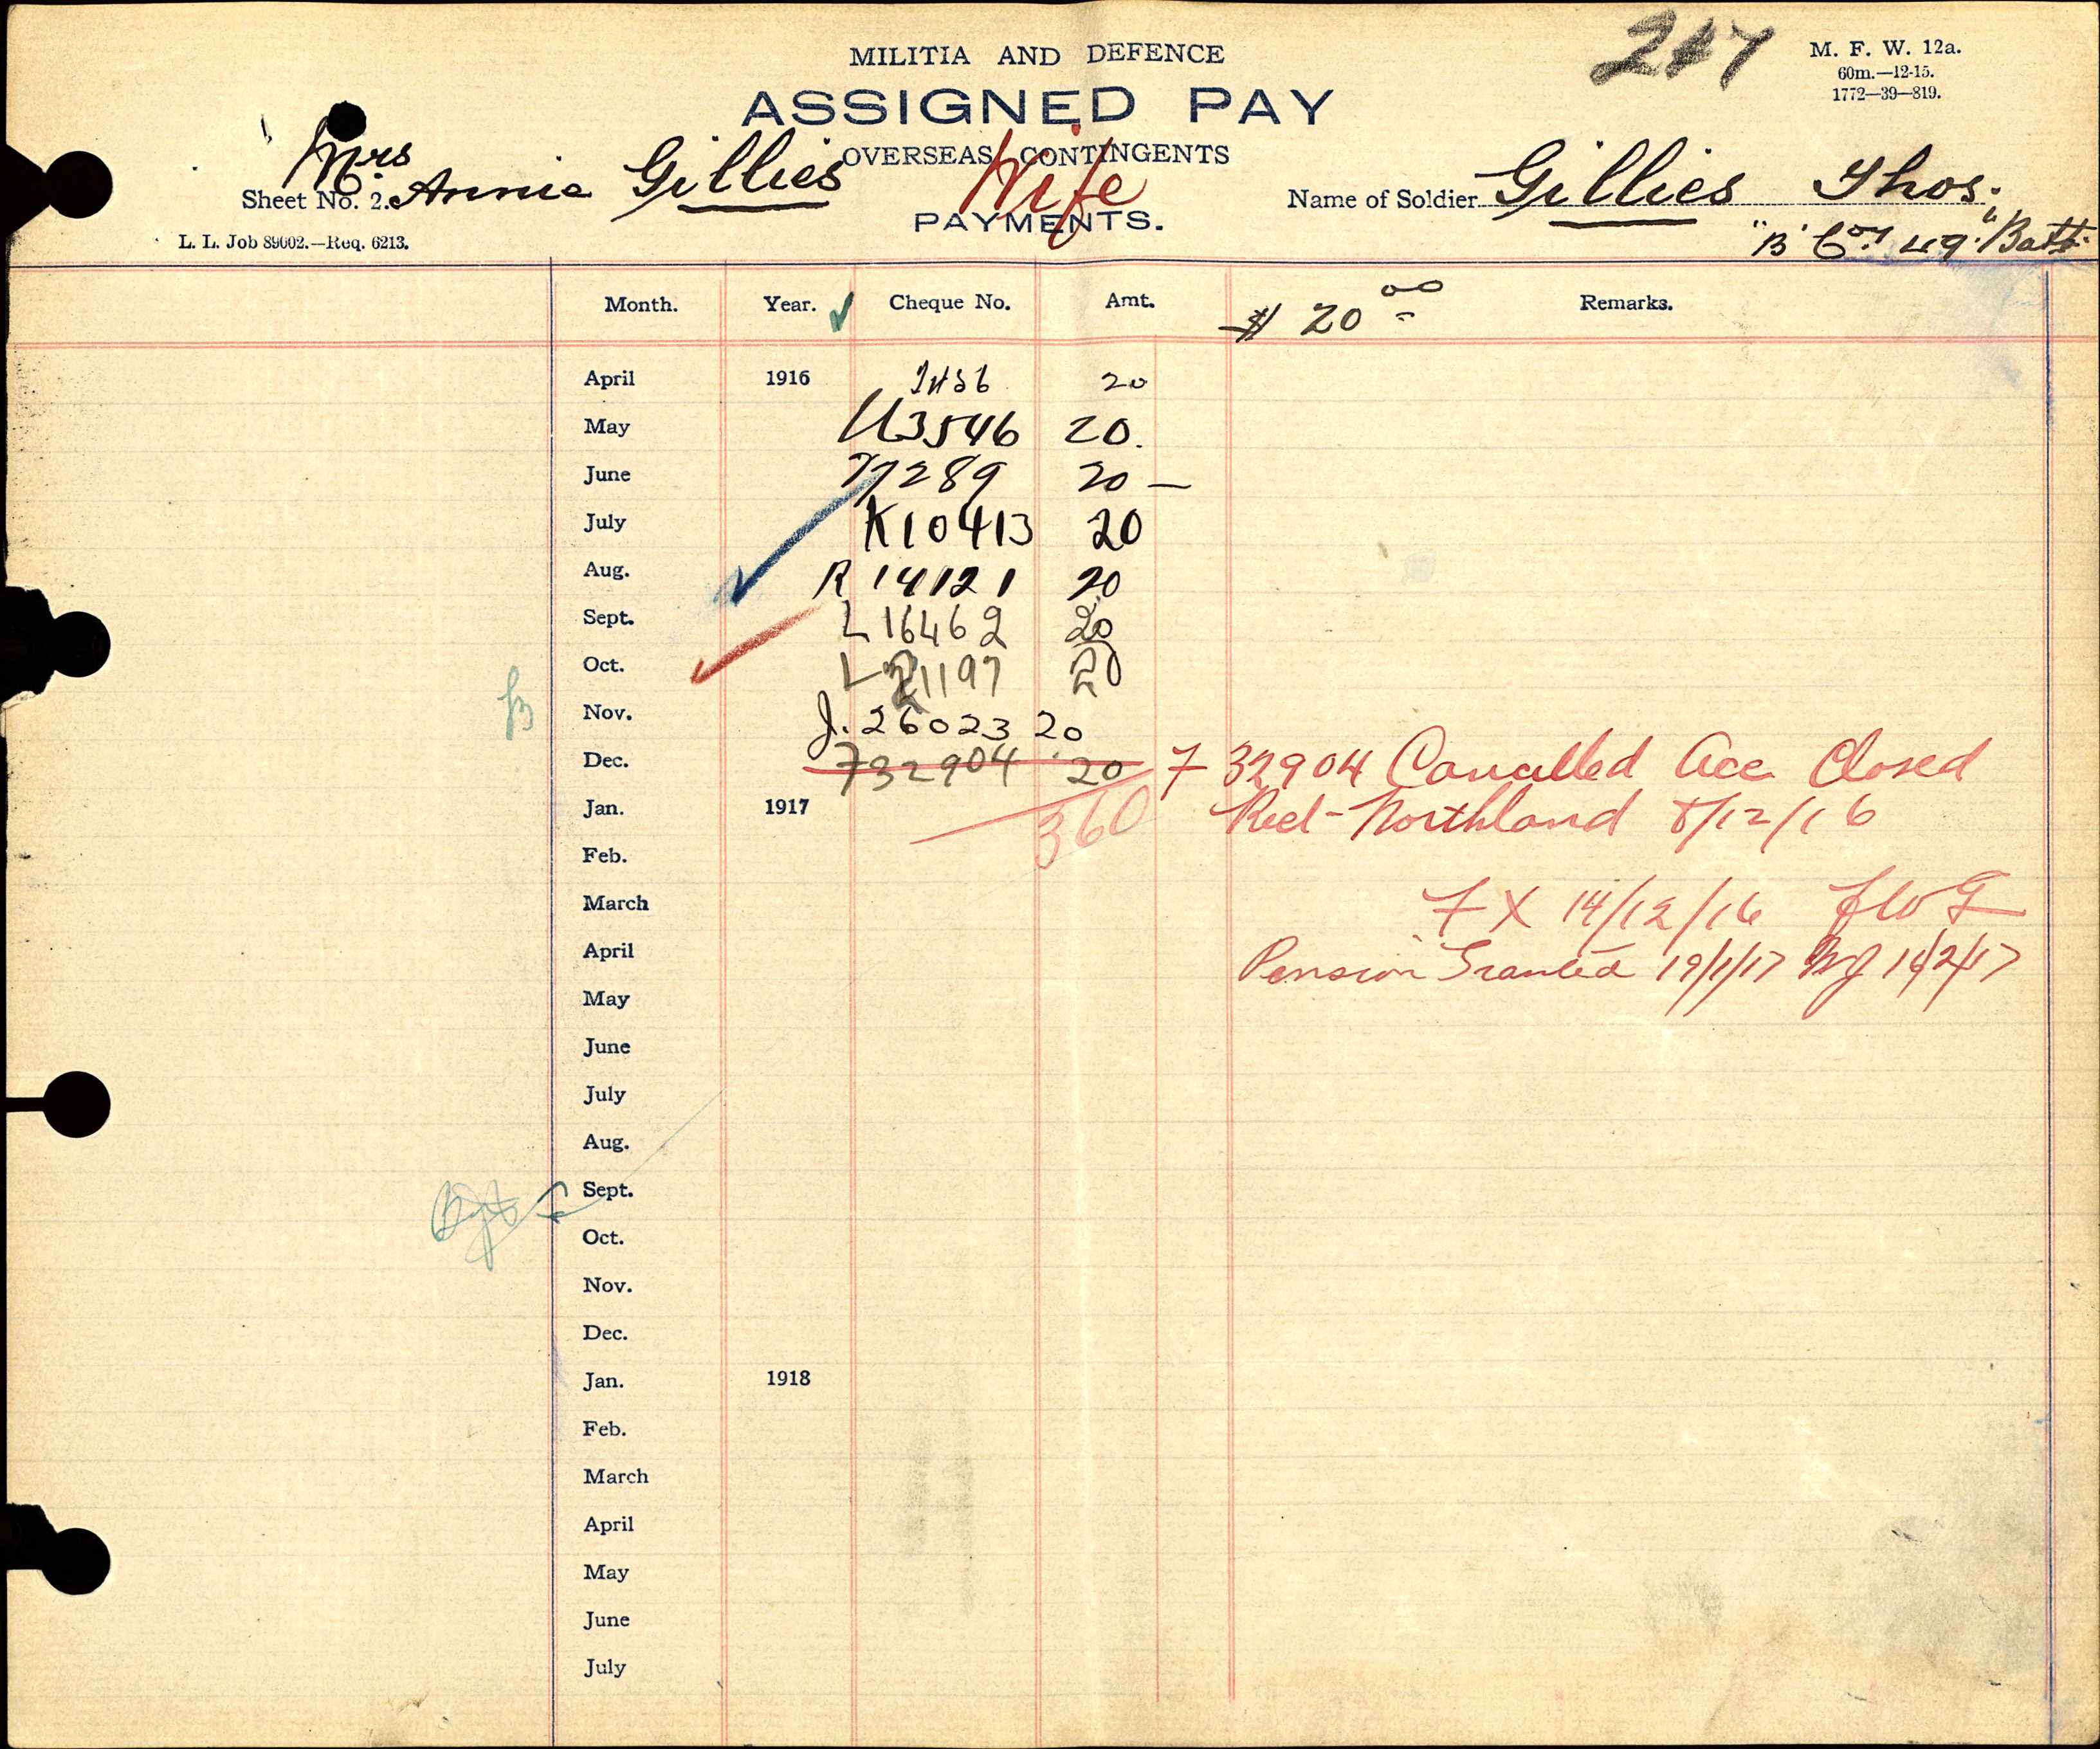 MILITIA AND DEFENCE
M. F. W. 12a.
60m.—12-15.
1772—39—819.
ASSIGNED PAY
OVERSEAS CONTINGENTS
Wife
PAYMENTS.
Mrs
Sheet No. 2. Annie Gillies
L. L. Job 89602.—Req. 6213.
Name of Soldier Gillies Thos.
"B" Coy 49" Batt.
Month. Year. Cheque No. Amt. $ 20 00 Remarks.
April 1916 20
May U3546 20.
June 7289 20 —
July K10413 20
Aug. R 14121 20
Sept. L 16462 20
Oct. L 21197 20
Nov. J. 26023 20
Dec. 732904 20 7 32904 Cancelled Acc Closed
Jan. 1917 360 Red - Northland 8/12/16
Feb.
March 7 X 14/12/16 JWG
April Pension Granted 19/1/17 16/2/17
May
June
July
Aug.
Sept.
Oct.
Nov.
Dec.
Jan. 1918
Feb.
March
April
May
June
July